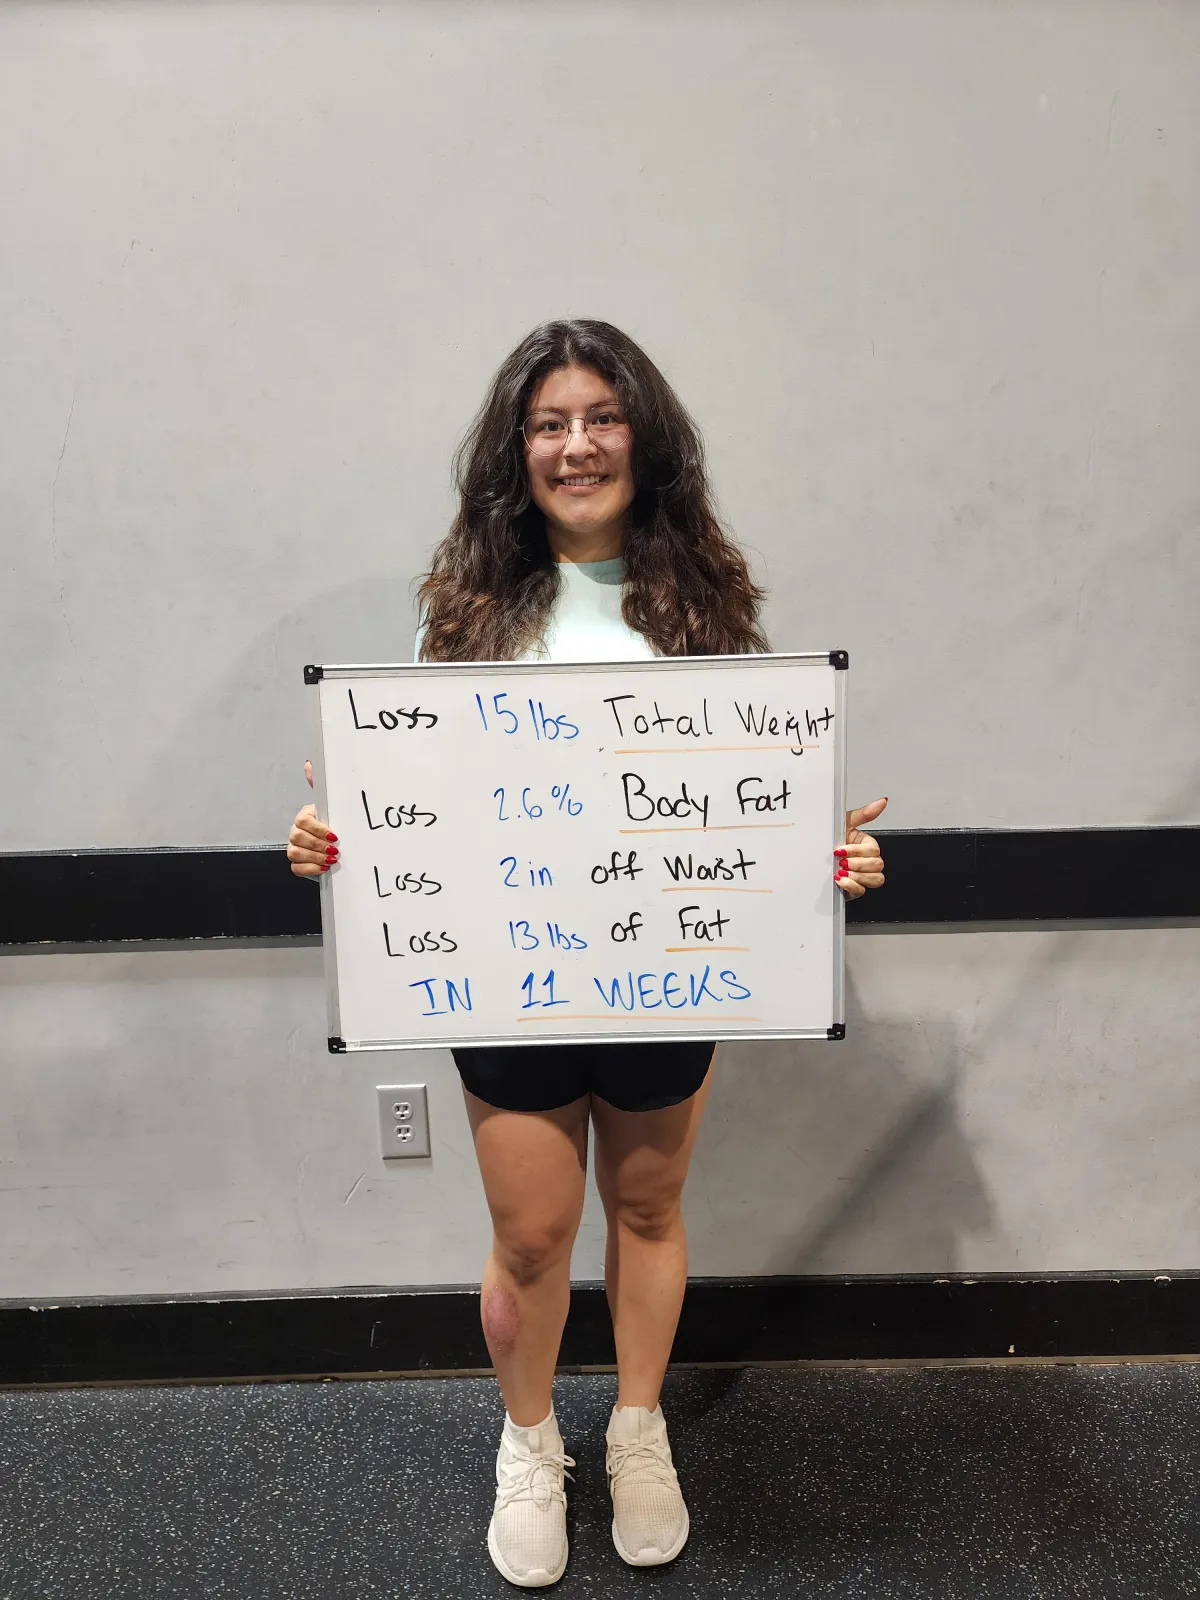 Loss 15 lbs Total Weight
Loss 2.6% Body Fat
Loss 2 in off Waist
Loss 13 lbs of Fat
IN 11 WEEKS